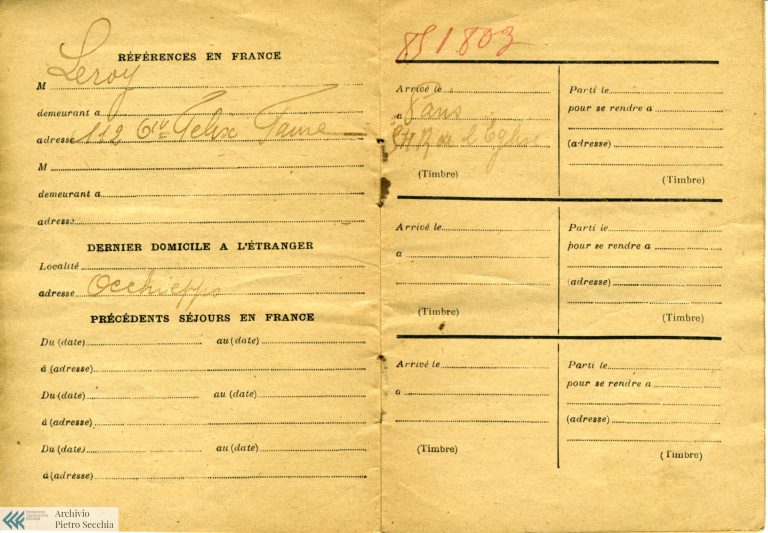 RÉFÉRENCES EN FRANCE
M Leroy
demeurant a
adresse 112 Felix Faure
M
demeurant a
adresse
DERNIER DOMICILE A L'ÉTRANGER
Localité
adresse Occhieppo
PRÉCÉDENTS SÉJOURS EN FRANCE
Du (date) au (date)
à (adresse)
Du (date) au (date)
à (adresse)
Du (date) au (date)
à (adresse)
Arrivé le
a Paris
Rue l'Eglise
(Timbre)
Parti le
pour se rendre a
(adresse)
(Timbre)
Arrivé le
a
(Timbre)
Parti le
pour se rendre a
(adresse)
(Timbre)
Arrivé le
a
(Timbre)
Parti le
pour se rendre a
(adresse)
(Timbre)
Archivio
Pietro Secchia